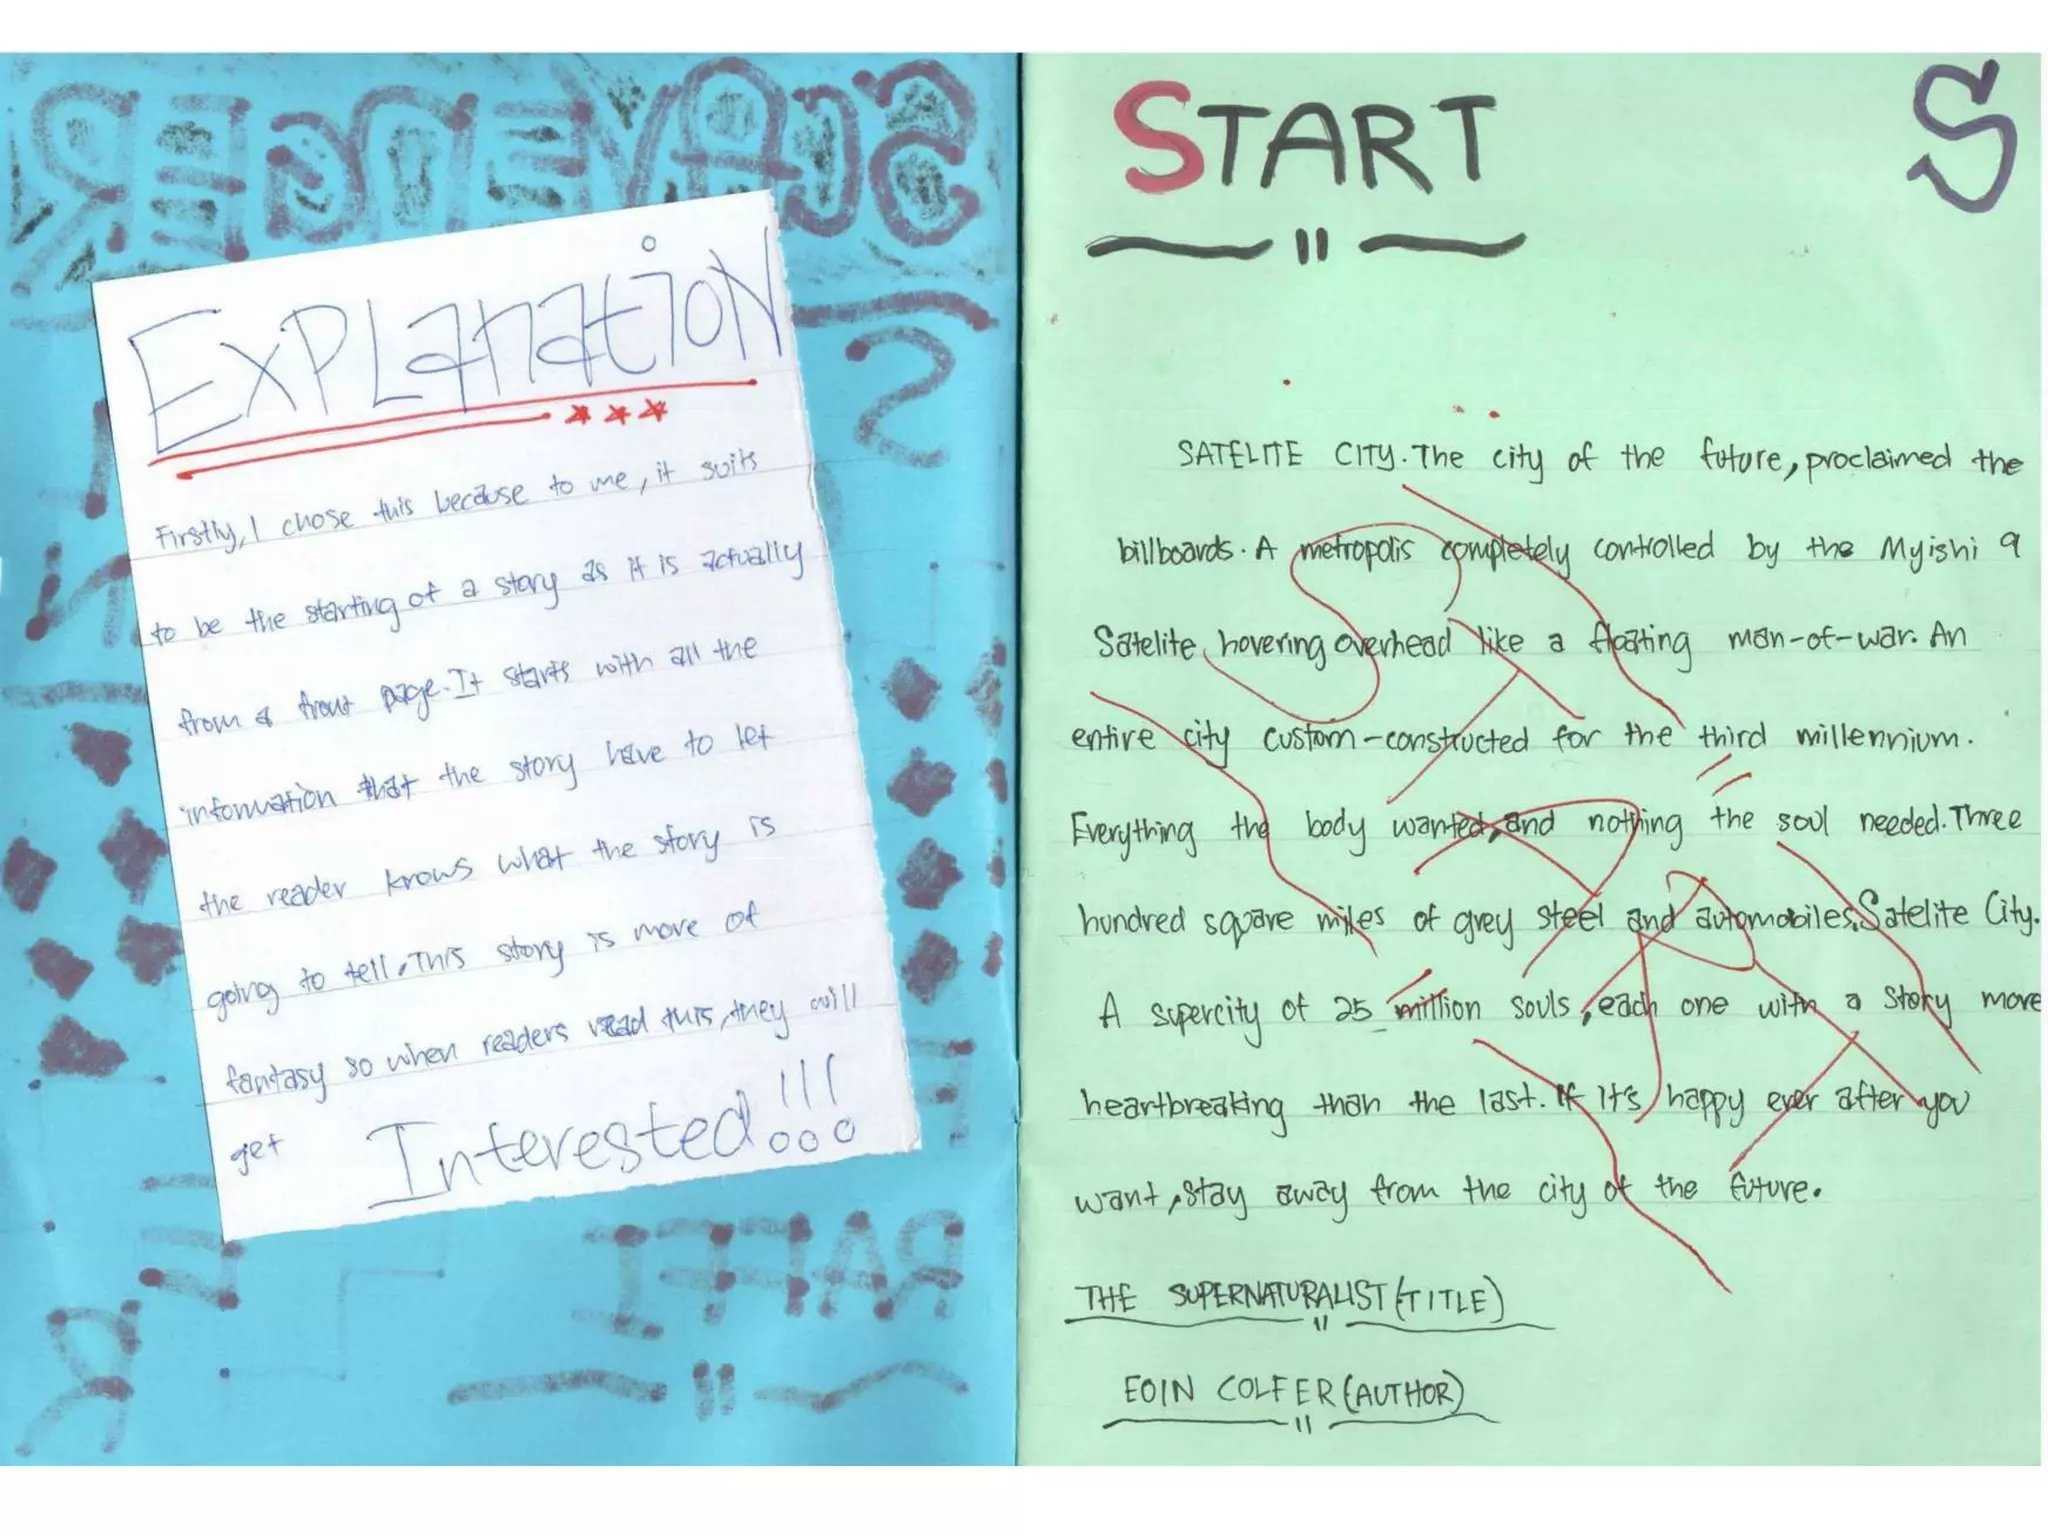 EXPLanatioN
Firstly, I chose this because to me, it suits
to be the starting of a story as it is actually
from a front page. It starts with all the
information that the story have to let
the reader knows what the story is
going to tell. This story is more of
fantasy so when readers read this, they will
get Interested!!!
START
S
SATELITE CITY. The city of the future, proclaimed the
billboards. A metropolis completely controlled by the Myishi 9
Satelite, hovering overhead like a floating man-of-war. An
entire city custom-constructed for the third millennium.
Everything the body wanted, and nothing the soul needed. Three
hundred square miles of grey steel and automobiles. Satelite City.
A supercity of 25 million souls, each one with a story more
heartbreaking than the last. If it's happy ever after you
want, stay away from the city of the future.
THE SUPERNATURALIST (TITLE)
EOIN COLFER (AUTHOR)
START